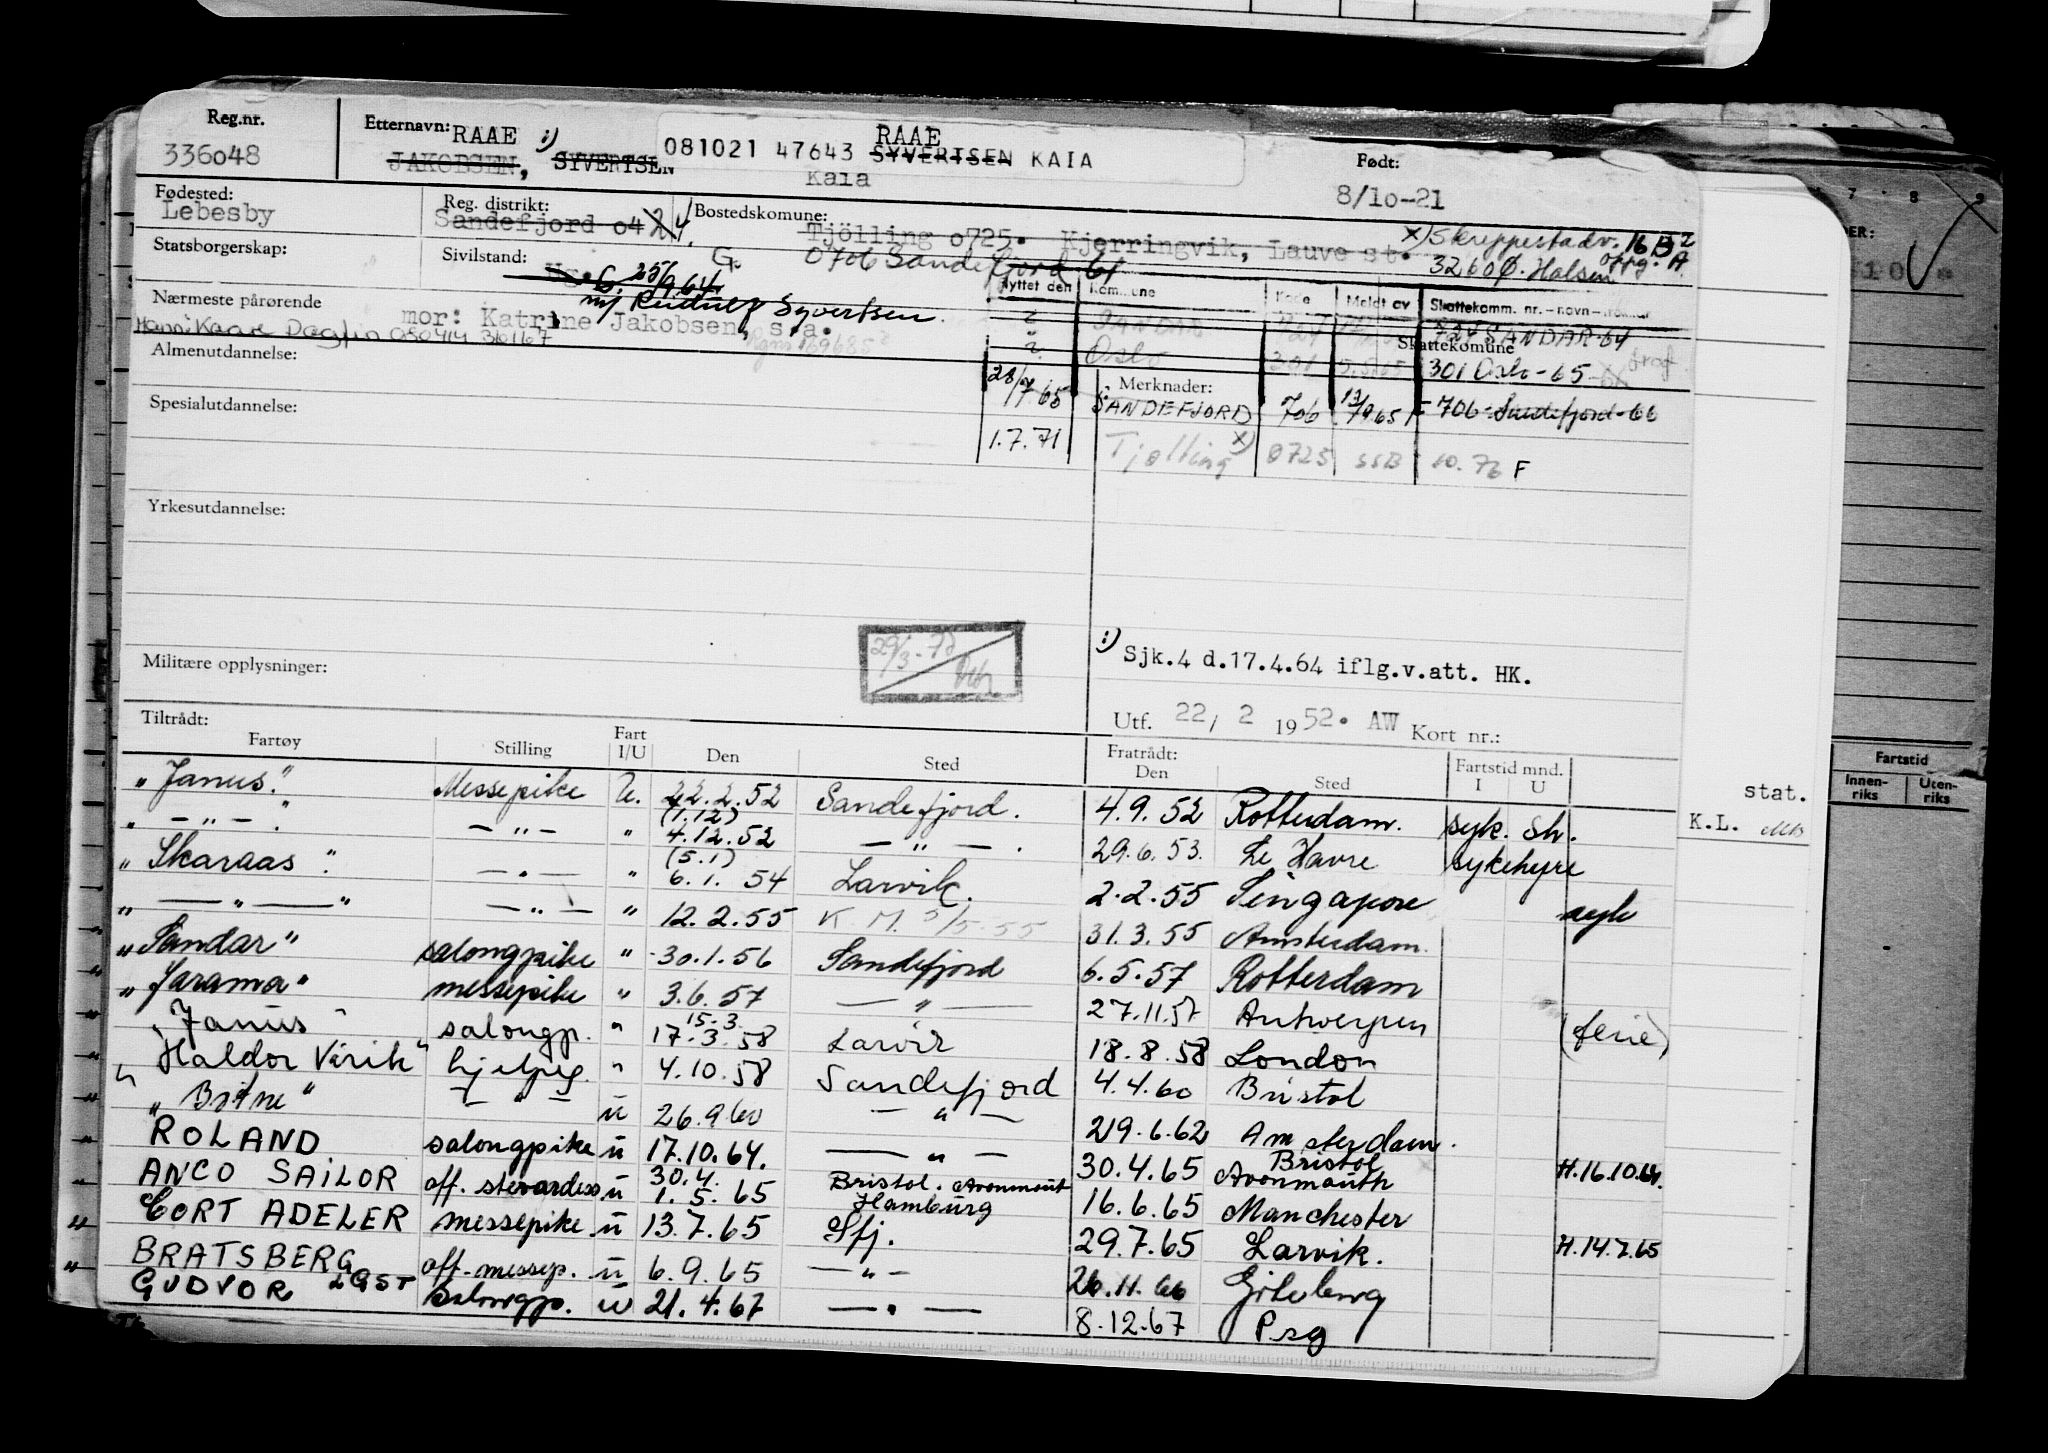 Reg.nr.
336048
Etternavn: RAAE :)
JAKOBSEN, SYVERTSEN
RAAE
081021 47643 SYVERTSEN KAIA
Kaia
Født:
8/10-21
Fødested:
Lebesby
Reg. distrikt:
Sandefjord 04
Bostedskommune:
Tjölling 0725. Kjerringvik, Lauve st.
0706 Sandefjord 61
x) Skreppestadv. 16 B
oppg. A.
3260 Ø. Halsen
Statsborgerskap:
Sivilstand:
G.
G. 25/9 64
m/ Reidulf Syvertsen.
Nærmeste pårørende
mor: Katrine Jakobsen, s.a.
Flyttet den Kommune Kode Meldt av Skattekomm. nr. - navn - fra år
? SANDAR SANDAR-64
Skattekomune
? Oslo 301 301 Oslo-65
Almenutdannelse:
Merknader:
28/7 65 SANDEFJORD 706 706-Sandefjord-66
Spesialutdannelse:
1.7.71 Tjølling x) 0725 SSB 10.76 F
Yrkesutdannelse:
29/3-78
:) Sjk.4 d.17.4.64 iflg.v.att. HK.
Militære opplysninger:
Utf. 22/ 2 1952. AW Kort nr.:
Tiltrådt:
Fartøy Stilling Fart I/U Den Sted Fratrådt: Den Sted Fartstid mnd. I U
"Janus" Messepike U. 22.2.52 Sandefjord. 4.9.52 Rotterdam. syk. Sh.
" - " - " - " - " (1.12) 4.12.52 - " - . 29.6.53. Le Havre sykehyre
"Skaraas" - " - " (5.1) 6.1. 54 Larvik. 2.2.55 Singapore
" — " — " - " - " 12.2.55 K M. 5/5-55 31.3.55 Amsterdam. syk
"Sandar" salongpike " 30.1.56 Sandefjord 6.5.57 Rotterdam
"Jarama" messepike " 3.6.57 — " — 27.11.57 Antwerpen (ferie)
"Janus" salongp. " 15-3. 17-3.58 Larvik 18.8.58 London
"Haldor Virik" hjelpeg. " 4.10.58 Sandefjord 4.4.60 Bristol
" - " - u 26.9.60 - " - 29.6.62 Amsterdam.
ROLAND salongpike u 17.10.64. — " — 30.4.65 Bristol Avonmouth H.16.10.64.
ANCO SAILOR off. stevardess u 30.4. 1.5.65 Bristol. Avonmout Hamburg 16.6.65 Manchester
CORT ADELER messepike u 13.7.65 Sfj. 29.7.65 Larvik. H.14.7.65
BRATSBERG off. messep. u 6.9.65 — " — 26.11.66 Göteborg
GUDVOR salongp. u 21.4.67 — " — 8.12.67 Psg
stat.
K.L.
Fartstid
Innen-riks Uten-riks
7 8 9